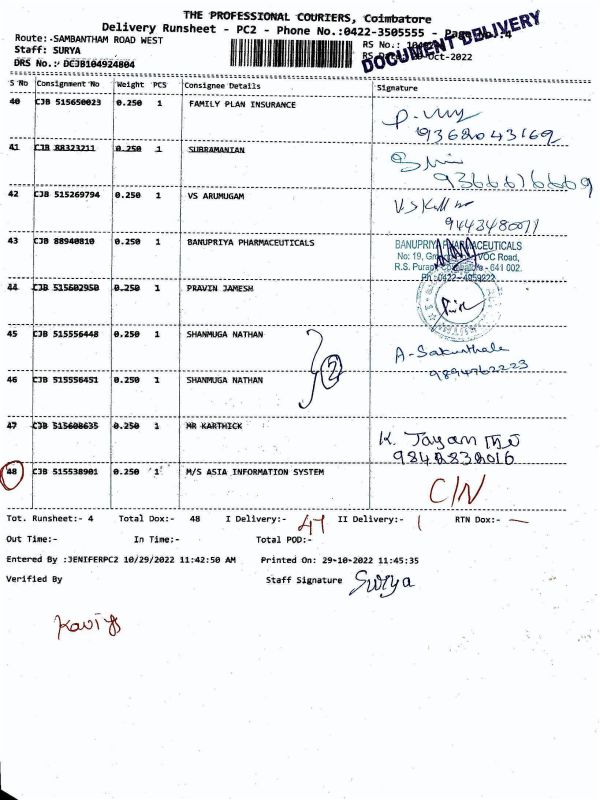 THE PROFESSIONAL COURIERS, Coimbatore
Delivery Runsheet - PC2 - Phone No.:0422-3505555 - Page No.:4
Route:-SAMBANTHAM ROAD WEST
RS No.:
Staff: SURYA
DOCUMENT DELIVERY
DRS No.: DCJB104924804
Oct-2022
S No Consignment No Weight PCS Consignee Details Signature
40 CJB 515650023 0.250 1 FAMILY PLAN INSURANCE
41 CJB 88323211 0.250 1 SUBRAMANIAN
42 CJB 515269794 0.250 1 VS ARUMUGAM
43 CJB 88940810 0.250 1 BANUPRIYA PHARMACEUTICALS
BANUPRIYA PHARMACEUTICALS
No: 19, VOC Road,
R.S. Puram, Coimbatore - 641 002.
Ph: 0422- 4959222
44 CJB 515602950 0.250 1 PRAVIN JAMESH
45 CJB 515556448 0.250 1 SHANMUGA NATHAN
A-Sakunthala
9894762223
2
46 CJB 515556451 0.250 1 SHANMUGA NATHAN
47 CJB 515608635 0.250 1 MR KARTHICK
K. Jayanthi
9842832016
48 CJB 515538901 0.250 1 M/S ASIA INFORMATION SYSTEM
C/N
Tot. Runsheet:- 4 Total Dox:- 48 I Delivery:- 47 II Delivery:- 1 RTN Dox:- —
Out Time:- In Time:- Total POD:-
Entered By :JENIFERPC2 10/29/2022 11:42:50 AM Printed On: 29-10-2022 11:45:35
Verified By Staff Signature Surya